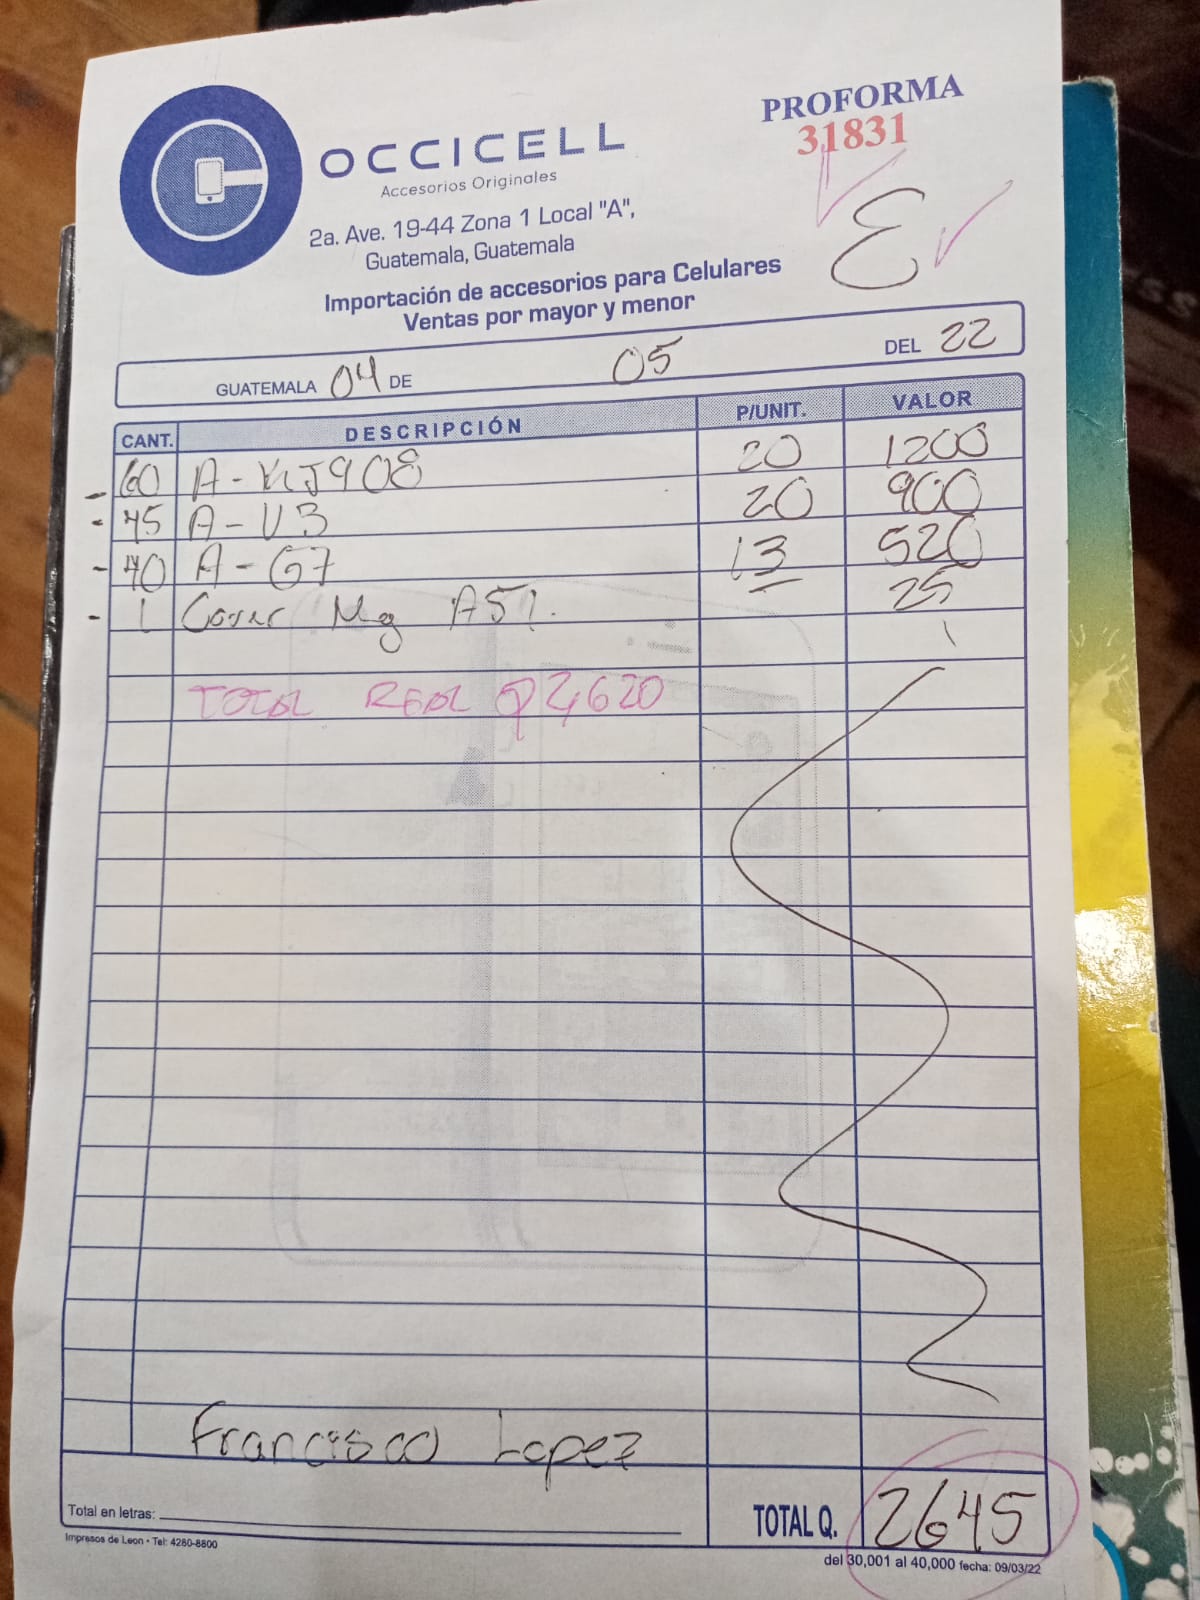 PROFORMA
31831
OCCICELL
Accesorios Originales
2a. Ave. 19-44 Zona 1 Local "A",
Guatemala, Guatemala
Importación de accesorios para Celulares
Ventas por mayor y menor
GUATEMALA 04 DE 05 DEL 22
CANT. DESCRIPCIÓN P/UNIT. VALOR
- 60 A-KJ908 20 1200
- 45 A-V3 20 900
- 40 A-G7 13 520
- 1 Cover Mg A51. 25
TOTAL REAL Q2,620
Francisco Lopez
Total en letras: TOTAL Q. 2645
Impresos de Leon • Tel: 4280-8800
del 30,001 al 40,000 fecha: 09/03/22